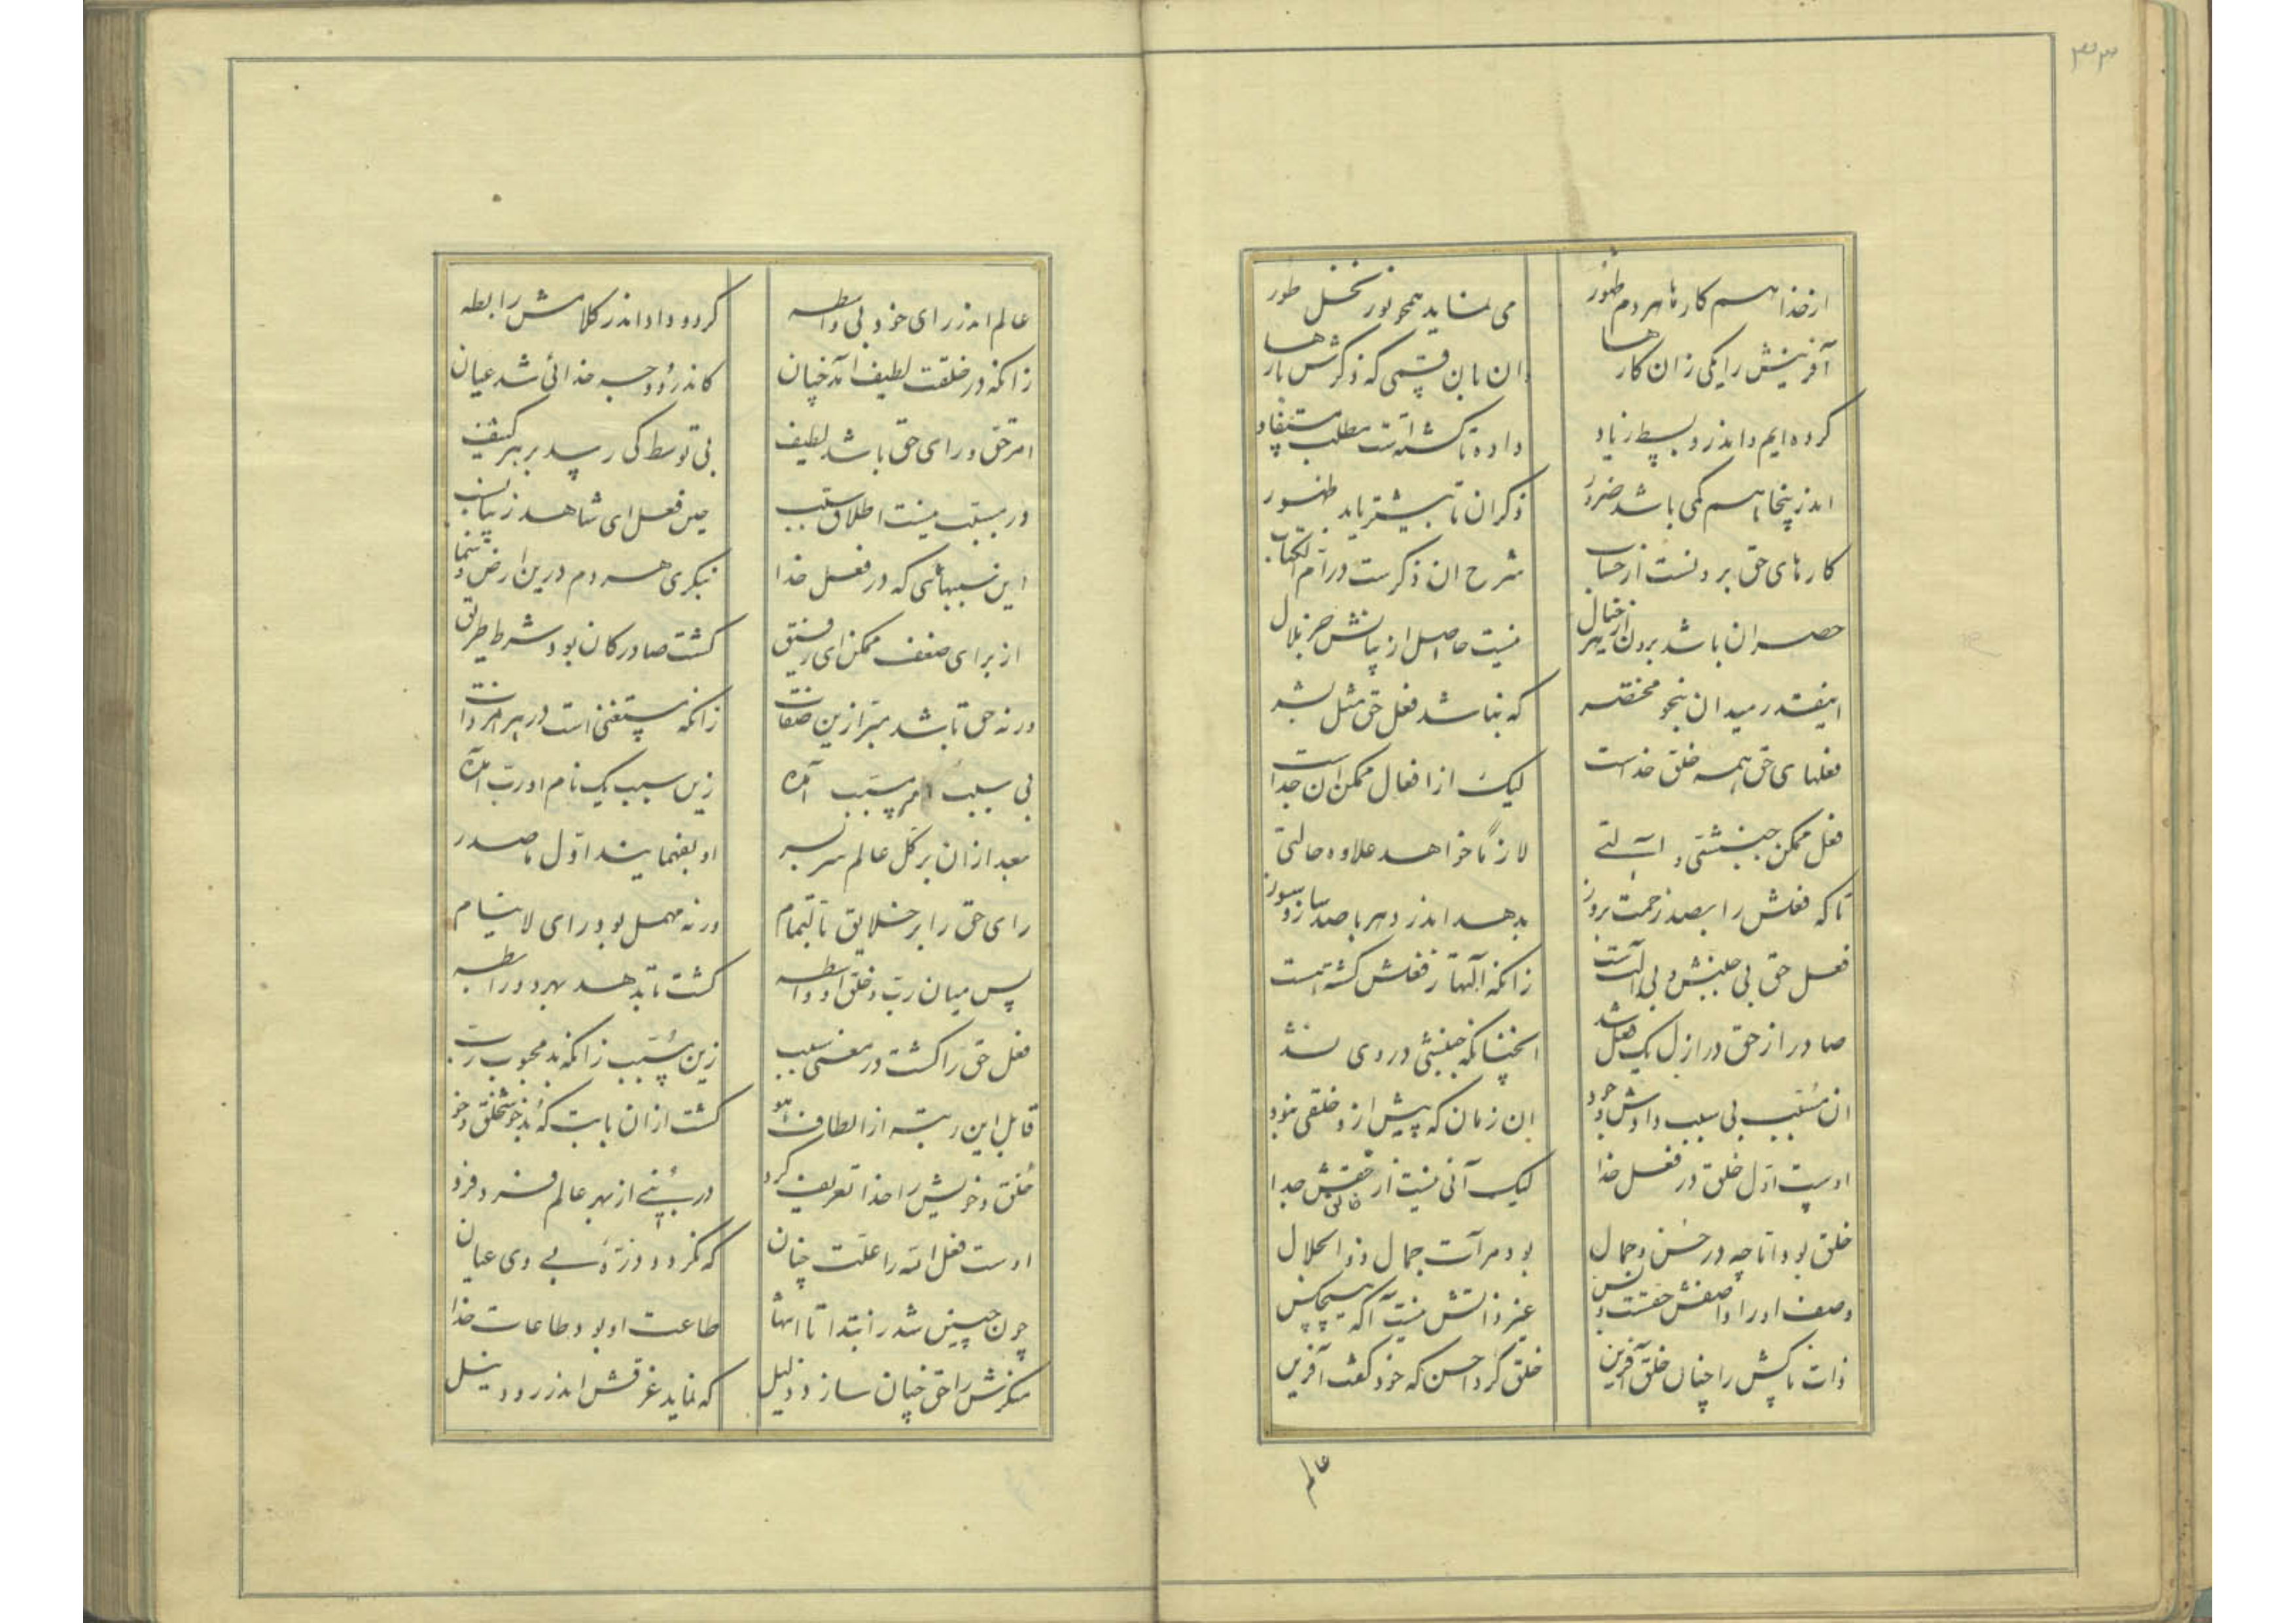 ۳۳
از خدا هم کارها هر دم ظهور
می نماید همچو نور نخل طور
آفرینش را یکی زان کارها
دان بان قسمی که ذکرش بارها
کرده ایم و اندرو بسط زیاد
داده تا گشته است مطلب مستفاد
اندرینجا هم کمی باشد ضرور
ذکر ان تا بیشتر یابد ظهور
کارهای حق برونست از حساب
شرح ان ذکرست در ام الکتاب
حصر ان باشد برون از خیال
نیست حاصل از بیانش جز ملال
اینقدر میدان بنحو مختصر
که نباشد فعل حق مثل بشر
فعلهای حق همه خلق خداست
لیک از افعال ممکن ان جداست
فعل ممکن جنبشی و آلتی
لازما خواهد علاوه حالتی
تا که فعلش را بصد زحمت بروز
بدهد اندر دهر با صد ساز و سوز
فعل حق بی جنبش و بی آلتست
زانکه آلتها ز فعلش گشته است
صادر از حق در ازل یک فعل شد
انچنانکه جنبشی در وی نشد
ان مسبب بی سبب دادش وجود
ان زمان که پیش ازو خلقی نبود
اوست اول خلق در فعل خدا
لیک آنی نیست از حقش جدا
خالق
خلق بود اما چه در حسن و جمال
بود مرآت جمال ذو الجلال
وصف او را واصفش حقست و بس
غیر ذاتش نیست آگه هیچکس
ذات پاکش را چنان خلق آفرین
خلق کرد احسن که خود گفت آفرین
عالم
عالم اندر رای خود بی واسطه
کرد و داد اندر کلامش رابطه
زانکه در خلقت لطیف آمد چنان
کاندرو وجه خدائی شد عیان
امر حق و رای حق باشد لطیف
بی توسط کی رسد بر هر کثیف
در مسبب نیست اطلاق سبب
حین فعل ای شاهد زیبا نسب
این سببهائی که در فعل خدا
بنگری هر دم درین ارض و سما
از برای ضعف ممکن ای رفیق
گشت صادر کان بود شرط طریق
ورنه حق باشد مبرا زین صفات
زانکه مستغنی است در هر امر ذات
بی سبب امر مسبب آمده
زین سبب یک نام او رب آمده
بعد ازان بر کل عالم سر بسر
او بفهمانید اول ما صدر
رای حق را بر خلایق بالتمام
ورنه مهمل بود رای لاینام
پس میان رب و خلق او واسطه
گشت تا بدهد بهر دو رابطه
فعل حق را گشت در معنی سبب
زین مسبب زانکه بد محبوب رب
قابل این رتبه از الطاف هو
گشت ازان بابت که بد خوش خلق و خو
خلق و خویش را خدا تعریف کرد
در نبی از بهر عالم فرد فرد
اوست فعل الله را علت چنان
که نگردد ذره بی وی عیان
چون چنین شد ز ابتدا تا انتها
طاعت او بود طاعات خدا
منکرش را حق چنان سازد ذلیل
که نماید غرقش اندر رود نیل